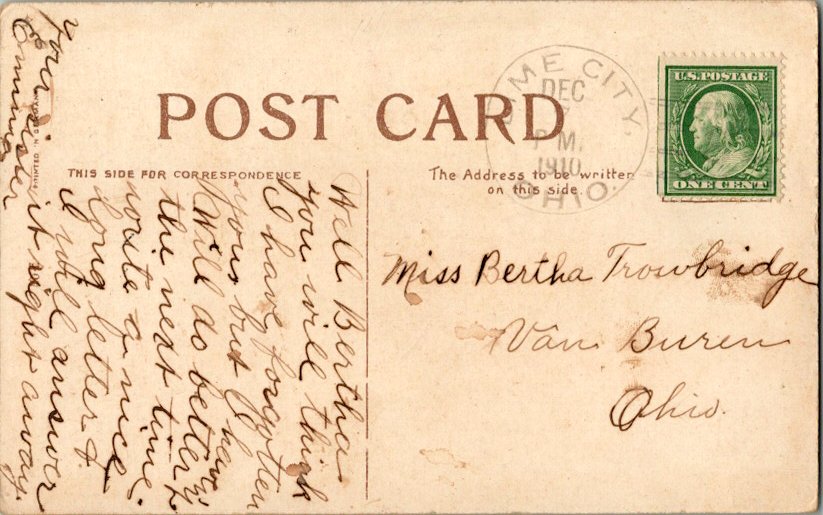 POST CARD
THIS SIDE FOR CORRESPONDENCE
The Address to be written
on this side.
OME CITY.
DEC
P M.
1910
OHIO.
U.S. POSTAGE
ONE CENT
Miss Bertha Trowbridge
Van Buren
Ohio.
Well Bertha
you will think
I have forgotten
yours but I have
Will do better
the next time.
a nice
Long letter &
I will answer
it right away.
your sister
PRINTED IN